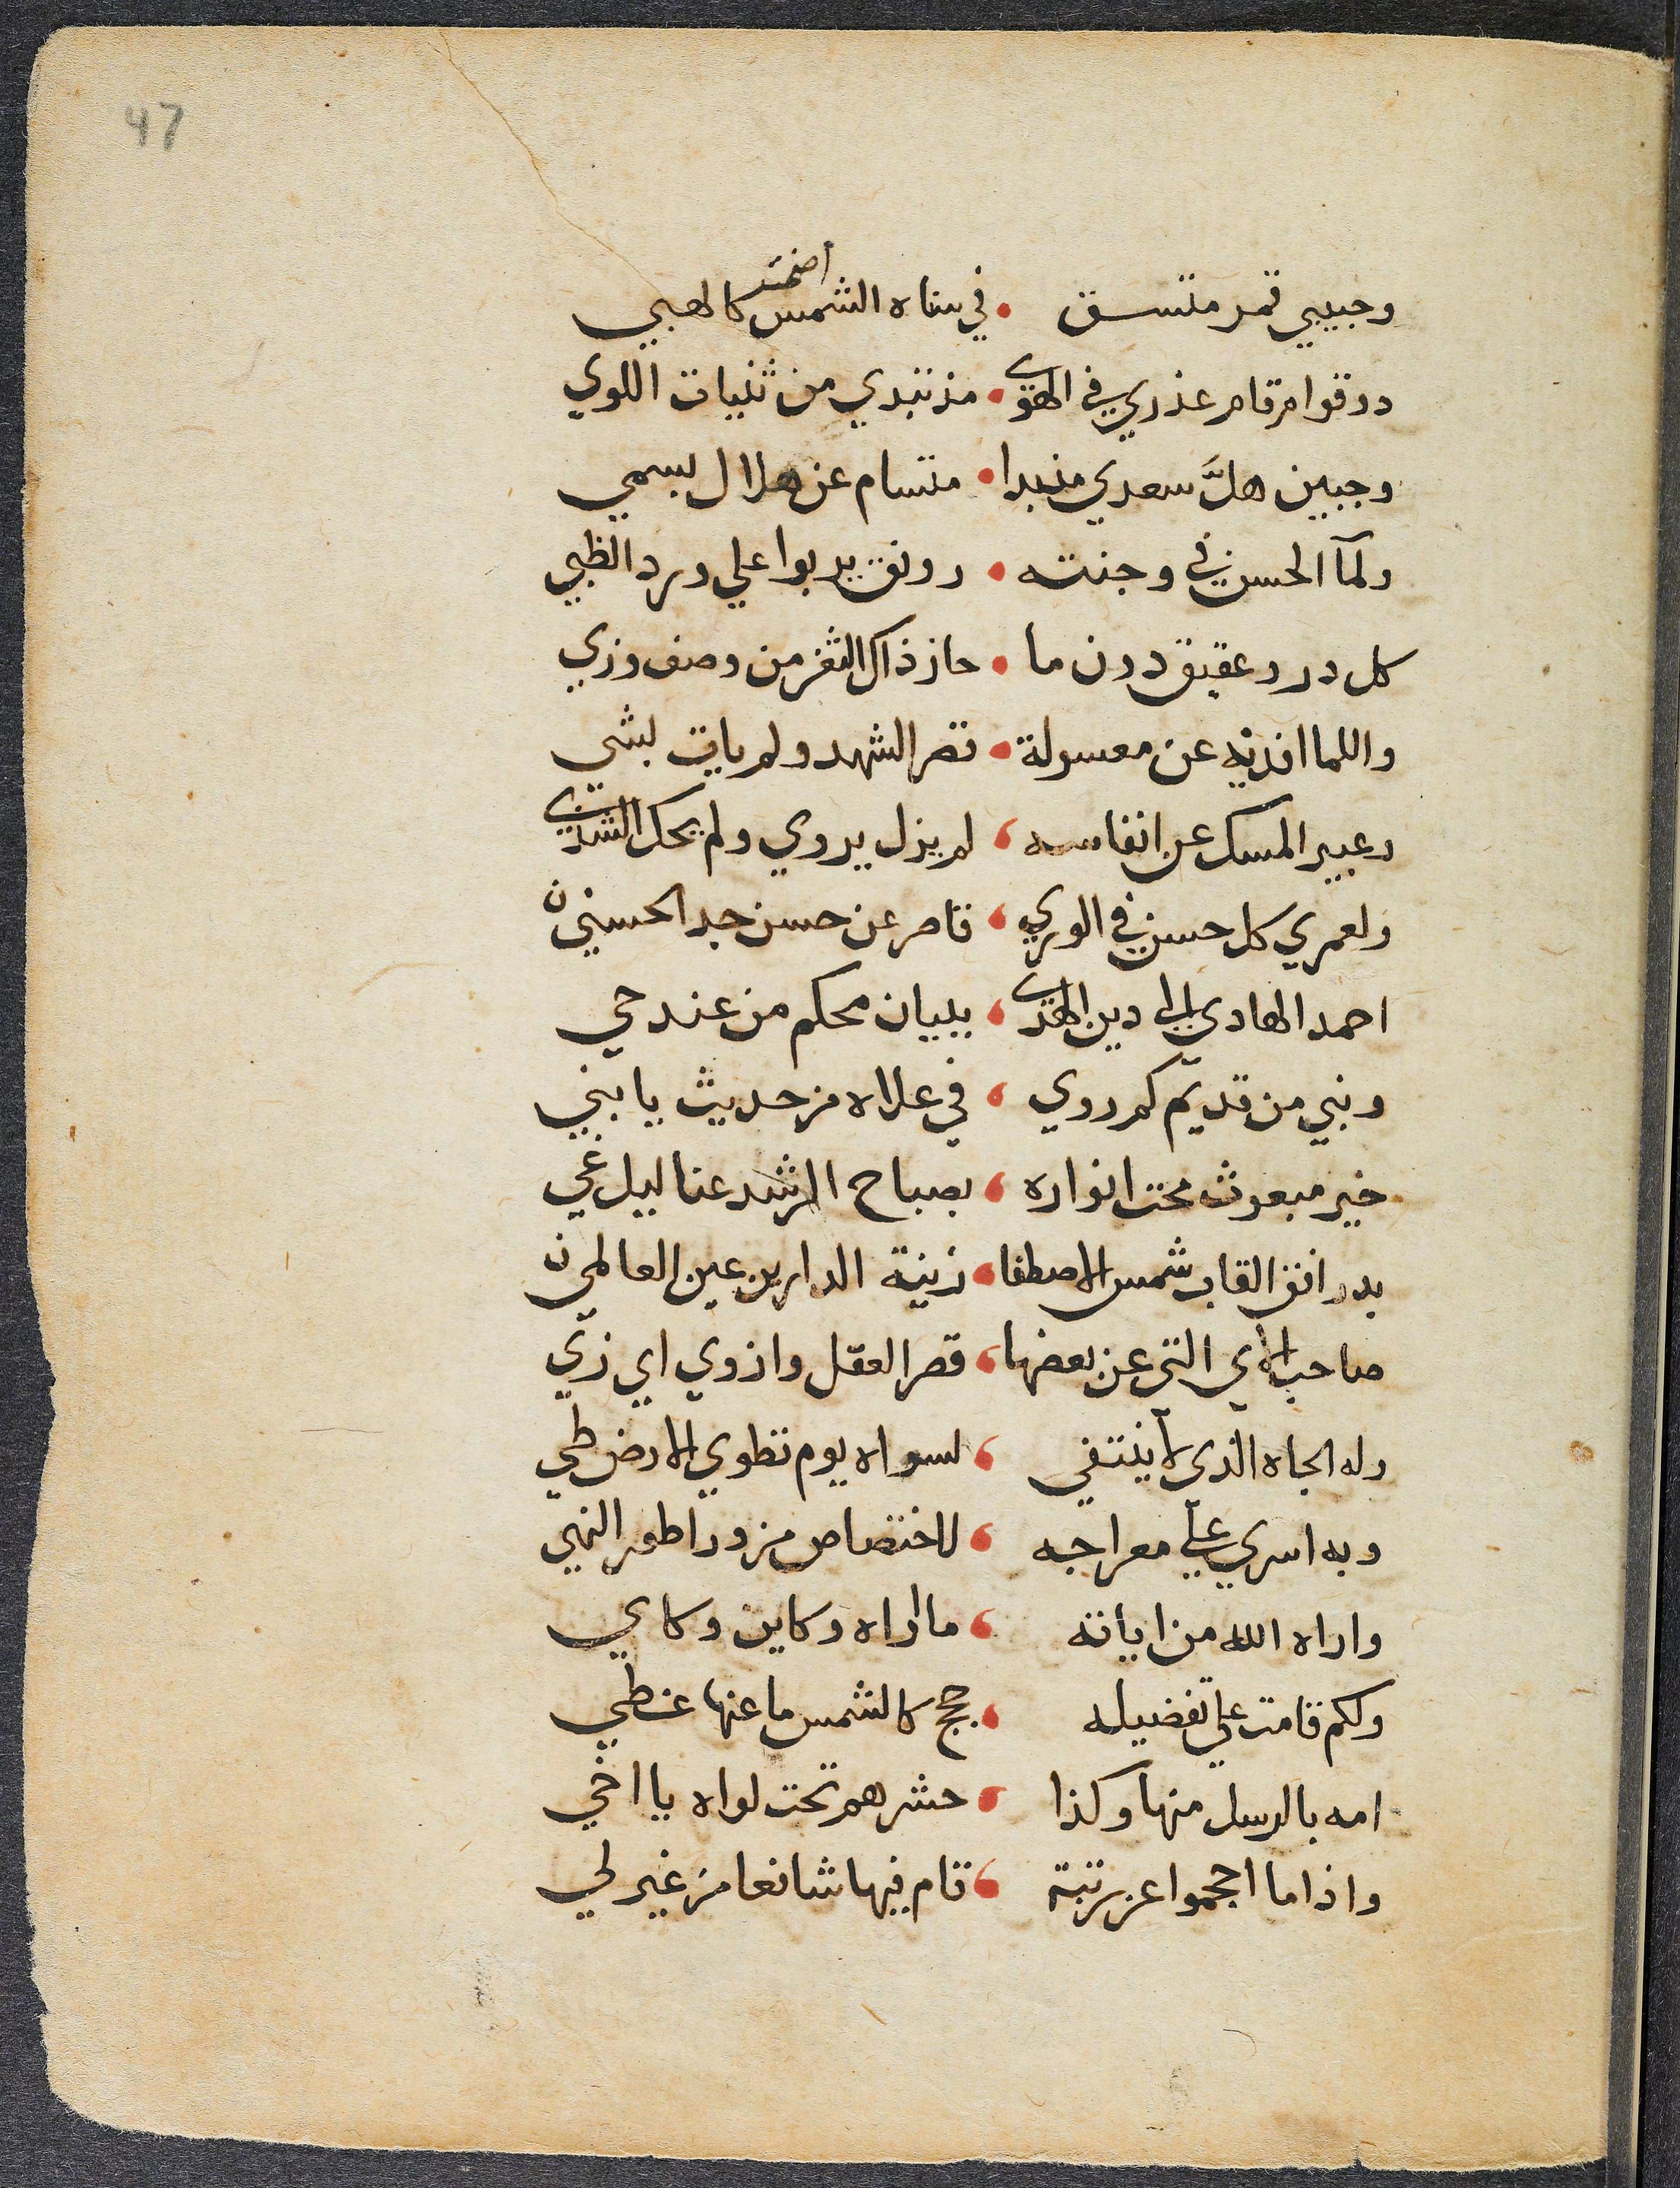 47
وحبيبي قمر متسق • في سناه الشمس اضحت كالهبي
دو قوام قام عذري في الهوى • مذ تبدي من ثنيات اللوي
وجبين هلَّ سعدي مذ بدا • متسام عن هلال يسمي
ولمآ الحسن في وجنته • رونق يربوا علي ورد الظبي
كل در وعقيق دون ما • حاز ذاك الثغر من وصف وزي
واللما افديه عن معسولة • قصر الشهد ولم يات بشي
وعبير المسك عن انفاسه ، لم يزل يروي ولم يحك الشذي
ولعمري كل حسن في الوري ، قاصر عن حسن جد الحسنين
احمد الهادي الي دين الهدى ، ببيان محكم من عند حي
ونبي من قديم كم روي ، في علاه من حديث يا بني
خير مبعوث محت انواره ، بصباح الرشد عنا ليل غي
بدر افق القاب شمس الاصطفا ، زينة الدارين عين العالمين
صاحب الاي التي عن بعضها ، قصر العقل وازوي اي زي
وله الجاه الذي لا ينتفي ، لسواه يوم تطوي الارض طي
وبه اسري علي معراجه ، لاختصاص من ورا طور النهي
واراه الله من اياته ، ما اراه وكاين وكاي
ولكم قامت علي تفضيله ، حجج كالشمس ما عنها غطي
امه بالرسل منها وكذا ، حشرهم تحت لواه يا اخي
واذا ما احجموا عن رتبة ، قام فيها شافعا من غير لي